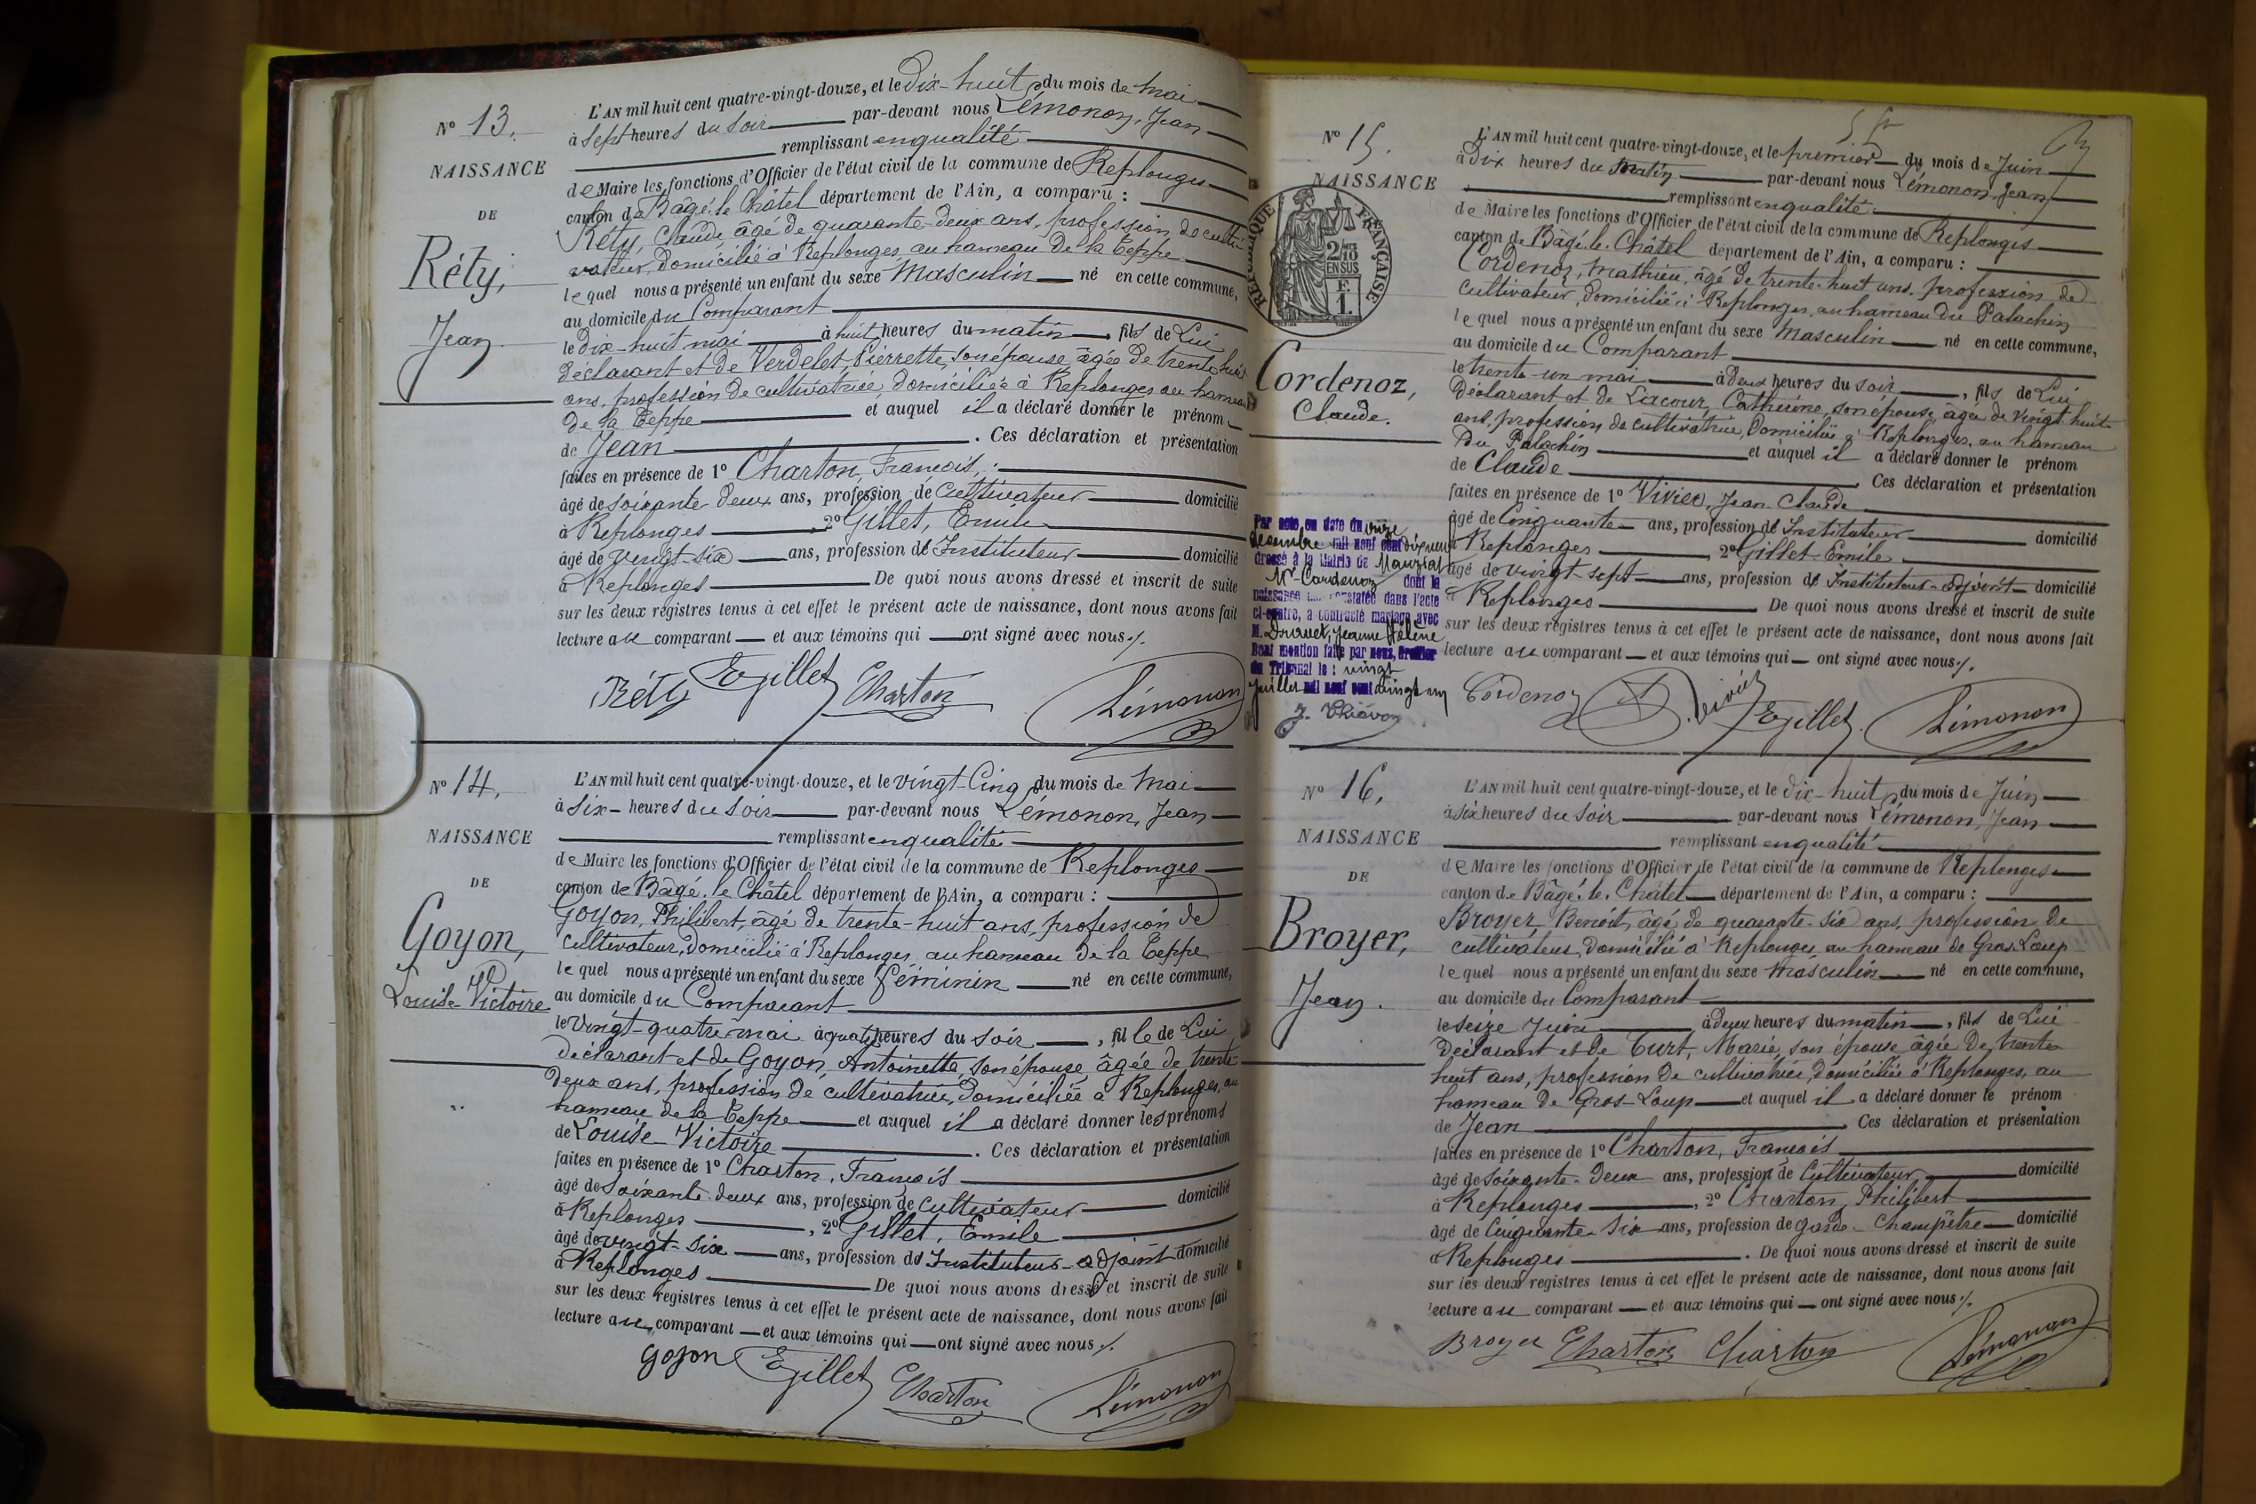 N° 13.
NAISSANCE
DE
Réty,
Jean
L'AN mil huit cent quatre-vingt-douze, et le Dix-huit du mois de Mai
à Sept heures du Soir par-devant nous Lémonon, Jean
remplissant en qualité
de Maire les fonctions d'Officier de l'état civil de la commune de Replonges
canton de Bâgé-le-Châtel département de l'Ain, a comparu :
Réty, Claude âgé de quarante-deux ans, profession de culti
vateur, domicilié à Replonges, au hameau de la Teppe
lequel nous a présenté un enfant du sexe Masculin né en cette commune,
au domicile du Comparant
le dix-huit mai à huit heures du matin, fils de Lui
déclarant et de Verdelet, Pierrette, son épouse, âgée de trente huit
ans, profession de cultivatrice, domiciliée à Replonges au hameau
de la Teppe et auquel il a déclaré donner le prénom
de Jean. Ces déclaration et présentation
faites en présence de 1° Charton, François,
âgé de soixante deux ans, profession de cultivateur domicilié
à Replonges, 2° Gillet, Emile
âgé de vingt-six ans, profession d'Instituteur domicilié
à Replonges De quoi nous avons dressé et inscrit de suite
sur les deux registres tenus à cet effet le présent acte de naissance, dont nous avons fait
lecture au comparant et aux témoins qui ont signé avec nous ./.
Réty E Gillet Charton Lémonon
N° 14.
NAISSANCE
DE
Goyon,
Louise Victoire
L'AN mil huit cent quatre-vingt-douze, et le vingt-Cinq du mois de Mai
à six heures du Soir par-devant nous Lémonon, Jean
remplissant en qualité
de Maire les fonctions d'Officier de l'état civil de la commune de Replonges
canton de Bâgé-le-Châtel département de l'Ain, a comparu :
Goyon, Philibert, âgé de trente-huit ans, profession de
cultivateur, domicilié à Replonges, au hameau de la Teppe
lequel nous a présenté un enfant du sexe féminin né en cette commune,
au domicile du Comparant
le vingt-quatre mai à quatre heures du soir, fille de Lui
déclarant et de Goyon, Antoinette, son épouse, âgée de trente-
deux ans, profession de cultivatrice, domiciliée à Replonges, au
hameau de la Teppe et auquel il a déclaré donner les prénoms
de Louise Victoire. Ces déclaration et présentation
faites en présence de 1° Charton, François
âgé de soixante deux ans, profession de cultivateur domicilié
à Replonges, 2° Gillet, Emile
âgé de vingt-six ans, profession d'Instituteur-adjoint domicilié
à Replonges De quoi nous avons dressé et inscrit de suite
sur les deux registres tenus à cet effet le présent acte de naissance, dont nous avons fait
lecture au comparant et aux témoins qui ont signé avec nous ./.
goyon E Gillet Charton Lémonon
N° 15.
NAISSANCE
RÉPUBLIQUE FRANÇAISE
2/10
EN SUS
F.
1.
Cordenoz,
Claude.
Par acte en date du onze
décembre mil neuf cent dix neuf
dressé à la Mairie de Manziat
Mr Cordenoz dont la
naissance est constatée dans l'acte
ci-contre, a contracté mariage avec
M. Druret, Jeanne Hélène
Dont mention faite par nous, Greffier
du Tribunal le : vingt
Juillet mil neuf cent vingt un
L'AN mil huit cent quatre-vingt-douze, et le premier du mois de Juin
à Dix heures du Matin par-devant nous Lémonon, Jean
remplissant en qualité
de Maire les fonctions d'Officier de l'état civil de la commune de Replonges
canton de Bâgé-le-Châtel département de l'Ain, a comparu :
Cordenoz, Mathieu, âgé de trente-huit ans, profession de
cultivateur, domicilié à Replonges, au hameau du Palachin
lequel nous a présenté un enfant du sexe Masculin né en cette commune,
au domicile du Comparant
le trente-un mai à deux heures du soir, fils de Lui
Déclarant et de Lacour, Catherine, son épouse, âgée de vingt-huit
ans, profession de cultivatrice, domiciliée à Replonges, au hameau
du Palachin et auquel il a déclaré donner le prénom
de Claude. Ces déclaration et présentation
faites en présence de 1° Vivier, Jean Claude
âgé de Cinquante ans, profession d'Instituteur domicilié
à Replonges, 2° Gillet Emile
âgé de vingt-sept ans, profession d'Instituteur-adjoint domicilié
à Replonges De quoi nous avons dressé et inscrit de suite
sur les deux registres tenus à cet effet le présent acte de naissance, dont nous avons fait
lecture au comparant et aux témoins qui ont signé avec nous ./.
Cordenoz Vivier E Gillet Lémonon
N° 16.
NAISSANCE
DE
Broyer,
Jean.
L'AN mil huit cent quatre-vingt-douze, et le dix-huit du mois de Juin
à six heures du Soir par-devant nous Lémonon, Jean
remplissant en qualité
de Maire les fonctions d'Officier de l'état civil de la commune de Replonges
canton de Bâgé-le-Châtel département de l'Ain, a comparu :
Broyer, Benoit, âgé de quarante-six ans, profession de
cultivateur, domicilié à Replonges, au hameau de Gros-Loup
lequel nous a présenté un enfant du sexe Masculin né en cette commune,
au domicile du Comparant
le seize Juin à deux heures du matin, fils de Lui
Déclarant et de Turt, Marie, son épouse, âgée de trente
huit ans, profession de cultivatrice, domiciliée à Replonges, au
hameau de Gros-Loup et auquel il a déclaré donner le prénom
de Jean. Ces déclaration et présentation
faites en présence de 1° Charton, François
âgé de soixante-deux ans, profession de Cultivateur domicilié
à Replonges, 2° Charton, Philibert
âgé de Cinquante-six ans, profession de garde-champêtre domicilié
à Replonges. De quoi nous avons dressé et inscrit de suite
sur les deux registres tenus à cet effet le présent acte de naissance, dont nous avons fait
lecture au comparant et aux témoins qui ont signé avec nous ./.
Broyer Charton Charton Lémonon